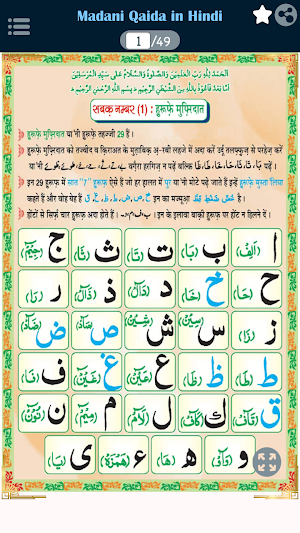 Madani Qaida in Hindi
1 /49
اَلْحَمْدُ لِلّٰهِ رَبِّ الْعٰلَمِيْنَ وَالصَّلٰوةُ وَالسَّلَامُ عَلٰى سَيِّدِ الْمُرْسَلِيْنَ
اَمَّا بَعْدُ فَاَعُوْذُ بِاللّٰهِ مِنَ الشَّيْطٰنِ الرَّجِيْمِ بِسْمِ اللّٰهِ الرَّحْمٰنِ الرَّحِيْمِ
सबक़ नम्बर (1) : हुरूफ़े मुफ़्रिदात
हुरूफ़े मुफ़्रिदात या'नी हुरूफ़े तहज्जी 29 हैं ।
हुरूफ़े मुफ़्रिदात को तज्वीद व क़िराअत के मुताबिक़ अ़-रबी लहजे में अदा करें उर्दू तलफ़्फ़ुज़ से परहेज़ करें
या'नी वग़ैरा हरगिज़ न पढ़ें बल्कि بَا، تَا، ثَا، حَا، خَا، طَا، ظَا पढ़ें ।
इन 29 हुरूफ़ में सात "7" हुरूफ़ ऐसे हैं जो हर हालत में पुर या'नी मोटे पढ़े जाते हैं इन्हें हुरूफ़े मुस्ता'लिया
कहते हैं और वोह येह हैं خ، ص، ض، ط، ظ، غ، ق इन का मज्मूआ़ خُصَّ ضَغْطٍ قِظْ है ।
होंटों से सिर्फ़ चार हुरूफ़ अदा होते हैं ب، ف، م، و इन के इलावा बाक़ी हुरूफ़ पर होंट न हिलने दें ।
ا (اَلِفْ) ب (بَا) ت (تَا) ث (ثَا) ج (جِيْمْ)
ح (حَا) خ (خَا) د (دَالْ) ذ (ذَالْ) ر (رَا)
ز (زَا) س (سِيْنْ) ش (شِيْنْ) ص (صَادْ) ض (ضَادْ)
ط (طَا) ظ (ظَا) ع (عَيْنْ) غ (غَيْنْ) ف (فَا)
ق (قَافْ) ك (كَافْ) ل (لَامْ) م (مِيْمْ) ن (نُوْنْ)
و (وَاوْ) ه (هَا) ء (هَمْزَهْ) ى (يَا)